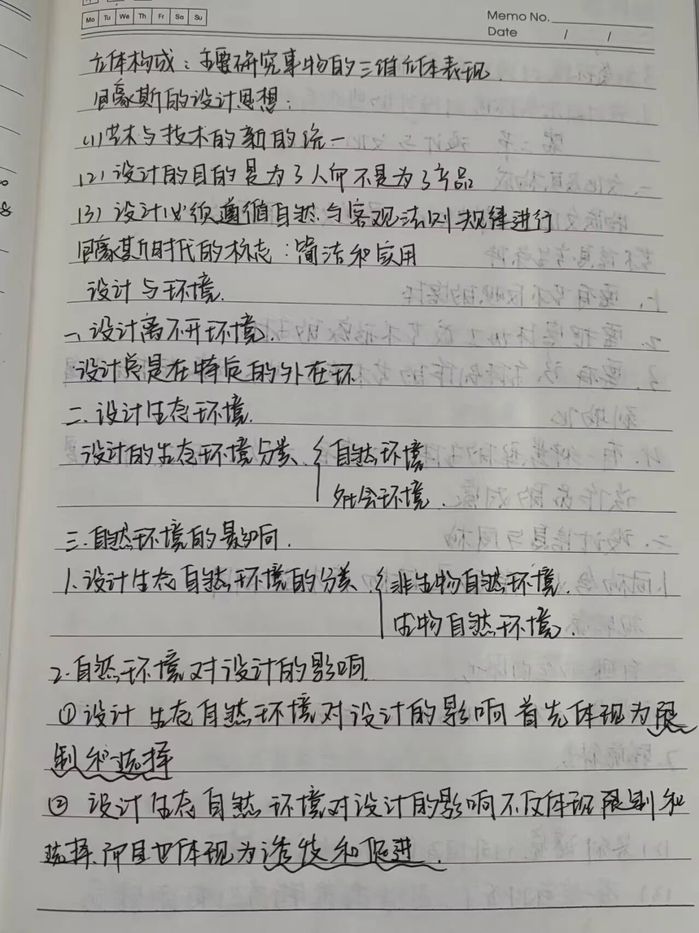 Mo Tu We Th Fr Sa Su
Memo No.
Date / /
立体构成：主要研究事物的三维立体表现.
包豪斯的设计思想：
(1)艺术与技术的新的统一
(2)设计的目的是为了人而不是为了产品
(3)设计必须遵循自然与客观法则规律进行
包豪斯时代的标志：简洁和实用
设计与环境.
一、设计离不开环境.
设计总是在特定的外在环
二.设计生态环境.
设计的生态环境分类 { 自然环境
社会环境.
三.自然环境的影响.
1.设计生态自然环境的分类 { 非生物自然环境.
生物自然环境.
2.自然环境对设计的影响
①设计生态自然环境对设计的影响首先体现为限
制和选择
②设计生态自然环境对设计的影响不仅体现限制和
选择.而且也体现为造使和促进.